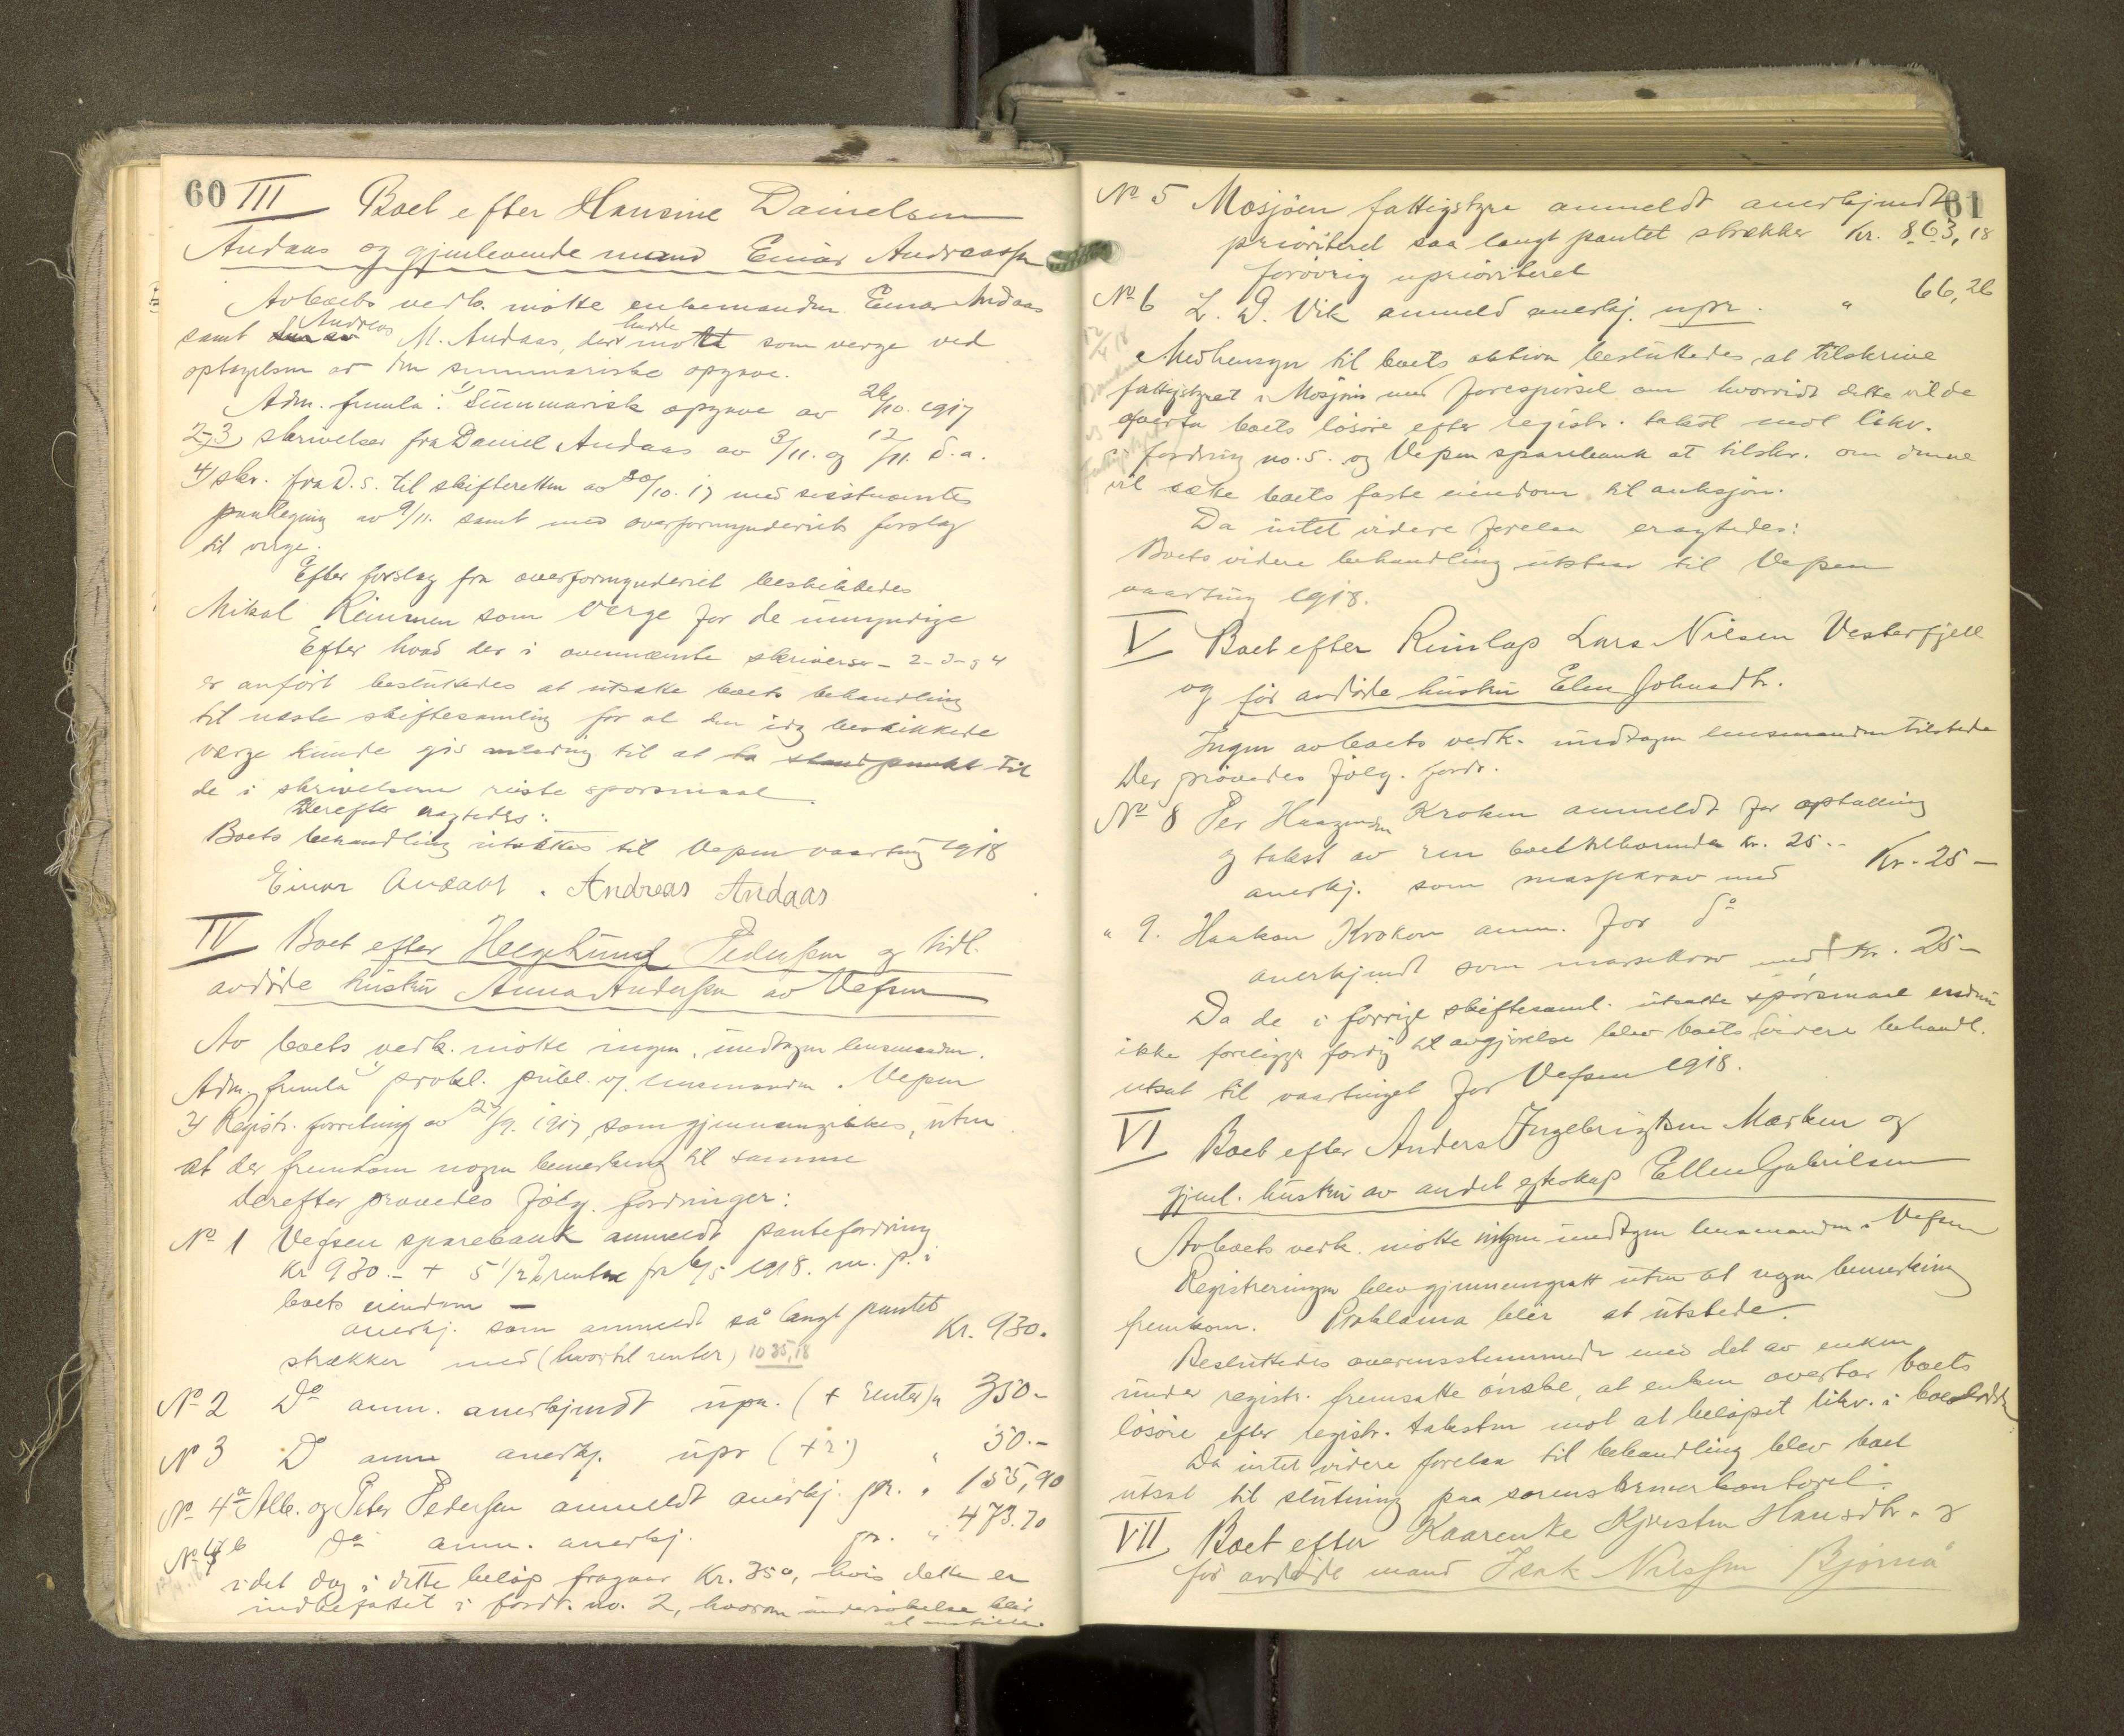 60 III Boet efter Hansine Danielsen
Andaas og gjenlevende mand Einar Andreassen
Av boets vedk. møtte enkemanden Einar Andaas
samt Andreas M. Andaas, der hadde møtt som verge ved
optagelsen av den summariske opgave.
Adm. fremla: 1) Summarisk opgave av 26/10. 1917
2-3) skrivelser fra Daniel Andaas av 3/11. og 12/11. d.a.
4) skr. fra D. S. til skifteretten av 30/10. 17 med
paategning av 9/11. samt med overformynderiets forslag
til verge.
Efter forslag fra overformynderiet beskikkedes
Mikal Reinmen som verge for de umyndige
Efter hvad der i ovennævnte skrivelser - 2-3-g 4
er anført besluttedes at utsætte boets behandling
til næste skiftesamling for at den idag beskikkede
verge kunde gis anledning til at ta standpunkt til
de i skrivelsene reiste spørsmaal.
Derefter eragtedes:
Boets behandling utsættes til Vefsen vaarting 1918
Einar Andaas. Andreas Andaas
IV Boet efter Helgelund Pedersen og tidl.
avdøde hustru Anna Andersen av Vefsen
Av boets vedk. møtte ingen, undtagen lensmanden.
Adm. fremla 1) prokl. publ. v/ lensmanden i Vefsen
2) Registr. forretning av 27/9. 1917, som gjennemgikkes, uten
at der fremkom nogen bemerkning til samme
Derefter prøvedes følg. fordringer:
No 1 Vefsen sparebank anmeldt pantefordring
Kr 930.- + 5 1/2 % renter fra 6/5 1918. m. p. i
boets eiendom —
anerkj. som anmeldt så langt pantet
strækker med (hvortil renter) 1035,18 Kr. 930.
No 2 Do anm. anerkjendt upr. (+ renter) " 350-
No 3 Do anm anerkj. upr (+ r.) " 50.-
No 4a Alb. og Peter Pedersen anmeldt anerkj. pr. " 155,90
No 4b Do anm. anerkj. pr. " 473.70
idet dog i dette beløp fragaar Kr. 350, hvis dette er
indbefattet i fordr. no. 2, hvorom undersøkelse blir
at anstille.
61
No 5 Mosjøen fattigstyre anmeldt anerkjendt
prioriteret saa langt pantet strækker Kr. 863,18
forøvrig uprioriteret
No 6 L. D. Vik anmeld anerkj. upr. " 66,26
12/4 18
Med hensyn til boets aktiva besluttedes at tilskrive
fattigstyret i Mosjøen med forespørsel om hvorvidt dette vilde
overta boets løsøre efter registr. takst mot likv.
i fordring no. 5. og Vefsen sparebank at tilskr. om denne
vil sætte boets faste eiendom til auksjon.
Da intet videre forelaa eragtedes:
Boets videre behandling utstaar til Vefsen
vaarting 1918.
V Boet efter Reinlap Lars Nilsen Vesterfjell
og før avdøde hustru Elen Johnsdtr.
Ingen av boets vedk. undtagen lensmanden tilstede
Der prøvedes følg. fordr.
No 8 Per Haagensen Kroken anmeldt for optælling
og takst av ren boet tilhørende kr. 25.-
anerkj. som massekrav med Kr. 25 —
" 9. Haakon Kroken anm. for do
anerkjendt som massekrav med Kr. 25 —
Da de i forrige skiftesaml. utsatte spørsmaal endnu
ikke foreligger færdig til avgjørelse blev boets videre behandl.
utsat til vaartinget for Vefsen 1918.
VI Boet efter Anders Ingebrigtsen Marken og
gjenl. hustru av andet egteskap Ellen Gabrielsen
Av boets vedk. møtte ingen undtagen lensmanden i Vefsen
Registreringen blev gjennemgaatt uten at nogen bemerkning
fremkom. Proklama blir at utstede.
Besluttedes overensstemmende med det av enken
under registr. fremsatte ønske, at enken overtar boets
løsøre efter registr. taksten mot at beløpet likv. i boeslodden
Da intet videre forelaa til behandling blev boet
utsat til slutning paa sorenskriverkontoret.
VII Boet efter Kaarenke Kjersten Hansdtr. &
før avdøde mand Isak Nilssen Bjørnå